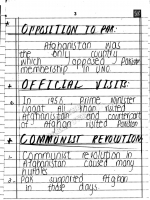 3
OPPOSITION TO PAK:
Afghanistan was
the only country
which opposed Pakistan
membership in UNO.
+ OFFICIAL VISITS:
In 1956, Prime Minister
Liaqat Ali Khan visited
Afghanistan and counterpart
of Afghan visited Pakistan
+ COMMUNIST REVOLUTION:
Communist revolution in
Afghanistan caused many
hurdles
Pak supported Afghan
in those days.